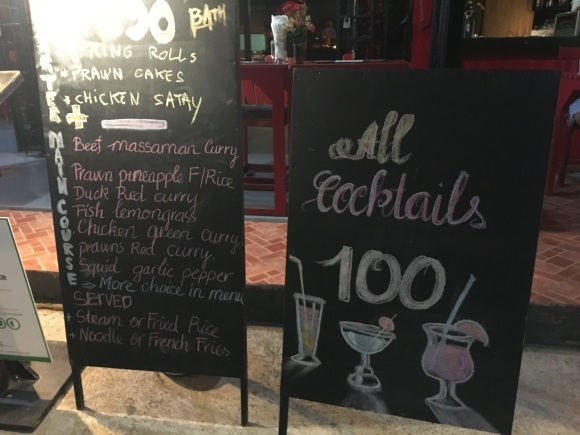 BATH
RING ROLLS
+ PRAWN CAKES
+ CHICKEN SATAY
+
MAIN COURSE
Beef massaman curry
Prawn pineapple F/Rice
Duck Red curry
Fish lemongrass
Chicken green curry
prawns Red curry
Squid garlic pepper
⇒ More choice in menu
SERVED
+ Steam or Fried Rice
+ Noodle or French Fries
All
Cocktails
100